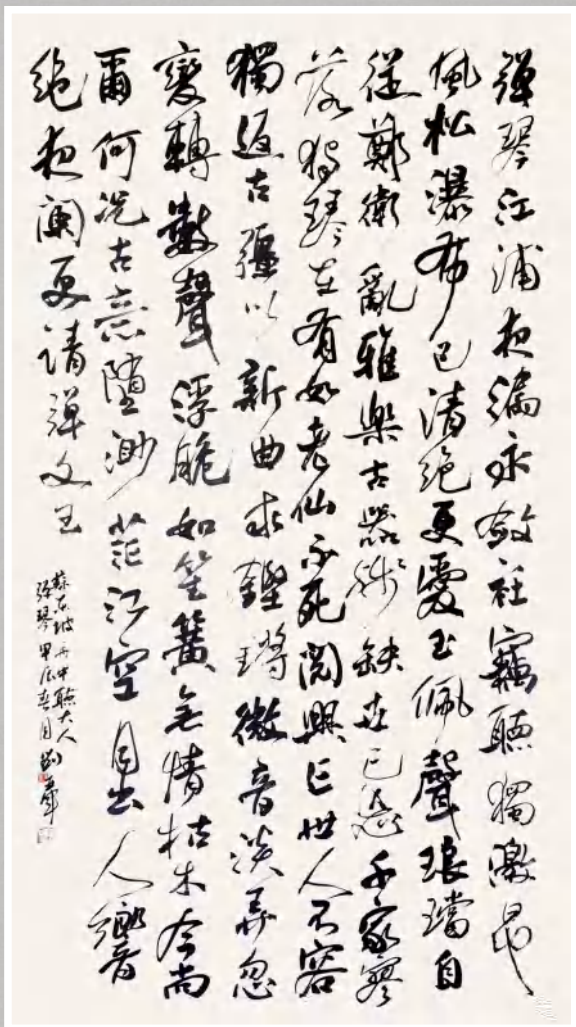 彈琴江浦夜漏永斂衽竊聽獨激昂
風松瀑布已清絕更愛玉佩聲琅璫自
從鄭衛亂雅樂古器殘缺世已忘千家寥
落獨琴在有如老仙不死閱興亡世人不容
獨返古強以新曲求鏗鏘微音淡弄忽
變轉數聲浮脆如笙簧無情枯木今尚
爾何況古意墮渺茫江空月出人響
絕夜闌更請彈文王
蘇東坡舟中聽大人
彈琴 甲辰春月 劉